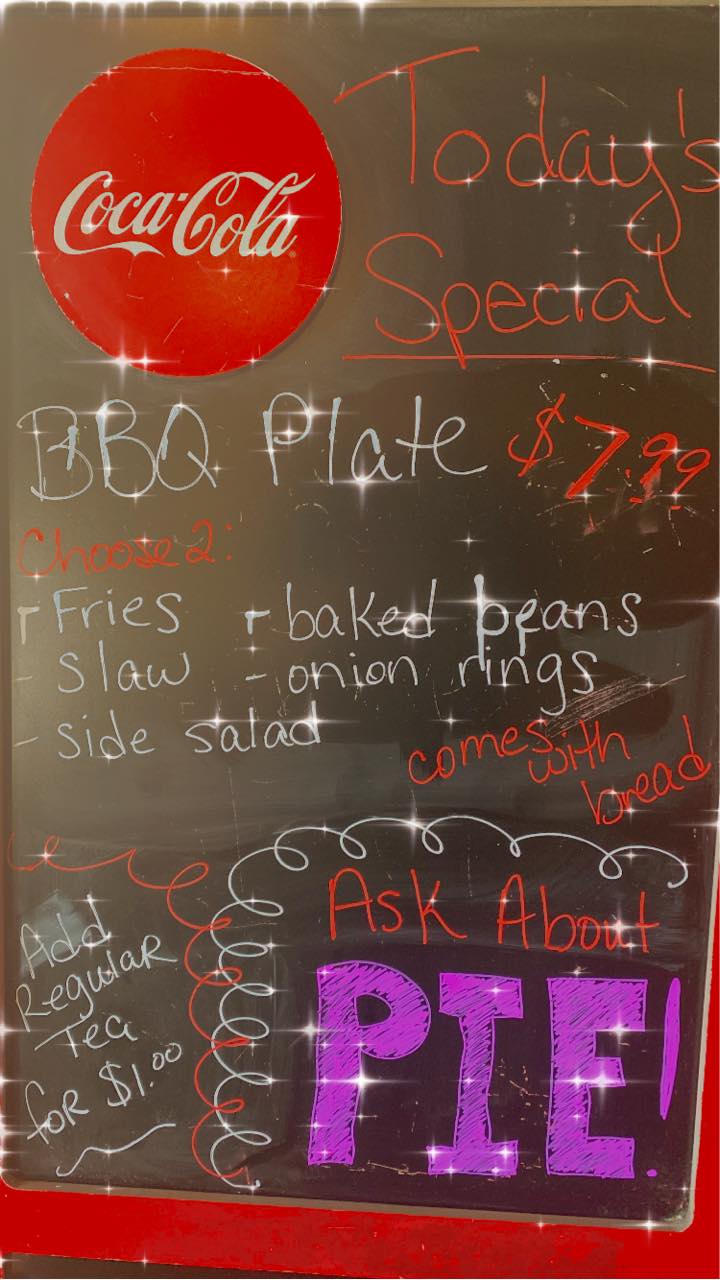 Coca-Cola
Today's
Special
BBQ Plate $7.99
Choose 2:
- Fries - baked beans
- Slaw - onion rings
- Side salad
comes with
bread
Ask About
PIE!
Add
Regular
Tea
for $1.00